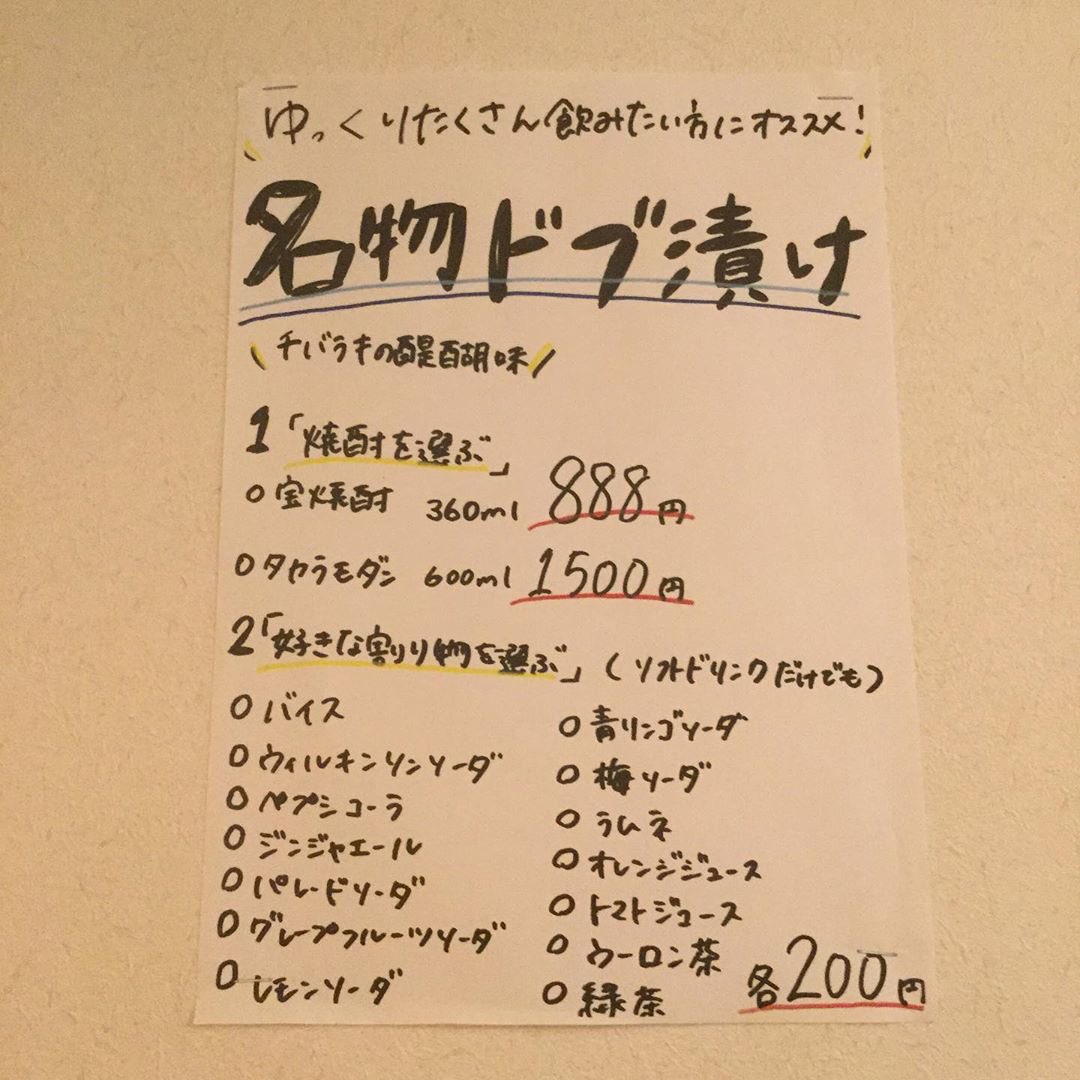 ゆっくりたくさん飲みたい方にオススメ!
名物ドブ漬け
チバラキの醍醐味
1「焼酎を選ぶ」
○宝焼酎 360ml 888円
○タカラモダン 600ml 1500円
2「好きな割り物を選ぶ」(ソフトドリンクだけでも)
○バイス
○ウィルキンソンソーダ
○ペプシコーラ
○ジンジャエール
○パレードソーダ
○グレープフルーツソーダ
○レモンソーダ
○青リンゴソーダ
○梅ソーダ
○ラムネ
○オレンジジュース
○トマトジュース
○ウーロン茶
○緑茶
各200円